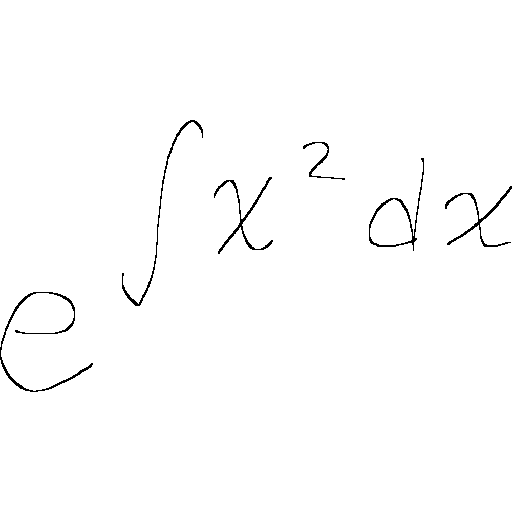 e^{\int x^2 dx}